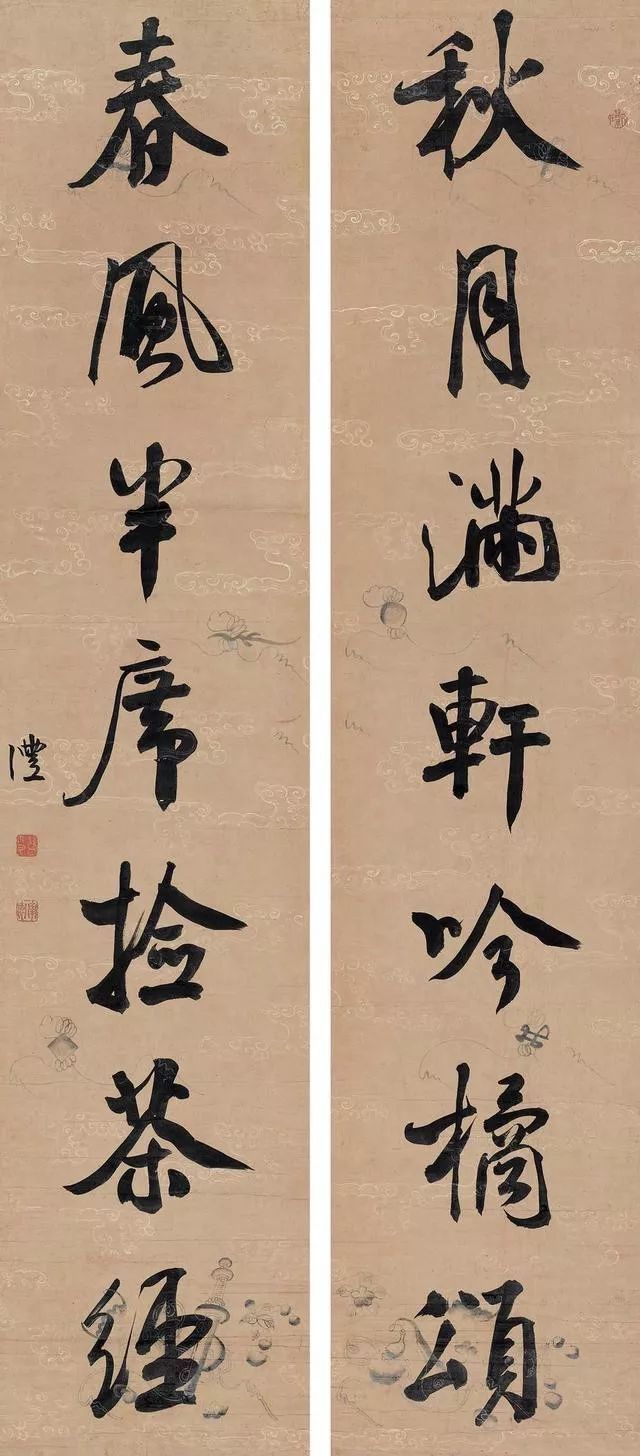 秋月满軒吟橘頌
春風半席捡茶經
澧